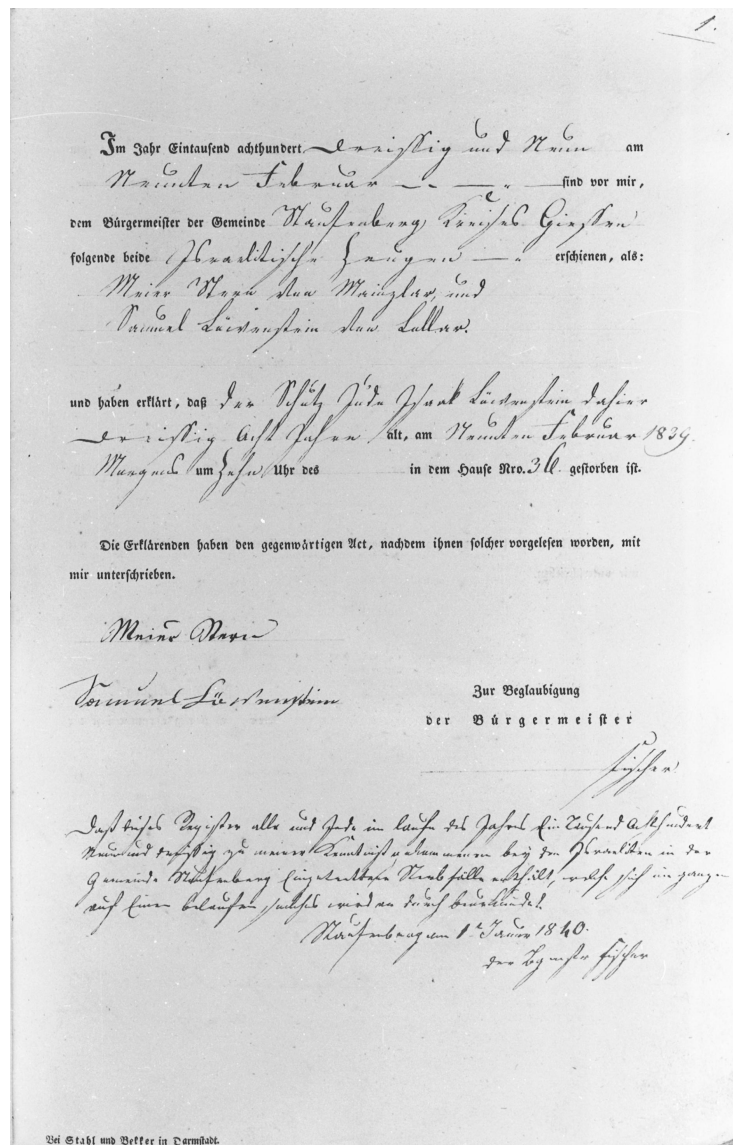 1.
Im Jahr Eintausend achthundert Dreissig und Neun am
Neunten Februar sind vor mir,
dem Bürgermeister der Gemeinde Staufenberg Kreises Giessen
folgende beide Israelitische Zeugen erschienen, als:
Meier Stern von Mainzlar und
Samuel Löwenstein von Lollar.
und haben erklärt, daß der Schutz Jude Isaak Löwenstein dahier
Dreissig Acht Jahre alt, am Neunten Februar 1839.
Morgens um Zehn Uhr des in dem Hause Nro. gestorben ist.
Die Erklärenden haben den gegenwärtigen Act, nachdem ihnen solcher vorgelesen worden, mit
mir unterschrieben.
Meier Stern
Samuel Löwenstein
Zur Beglaubigung
der Bürgermeister
Fischer
Daß dieses Register alle und Jede im laufe des Jahrs Ein Tausend Achthundert
Neun und dreissig zu meiner Kenntniß gekommenen bey den Israeliten in der
Gemeinde Staufenberg Eingetrettene Sterbfälle enthält, welche sich im ganzen
auf Einen belaufen, solches wird an durch beurkundet.
Staufenberg am 1t Januar 1840.
der Bgmstr Fischer
Bei Stahl und Bekker in Darmstadt.